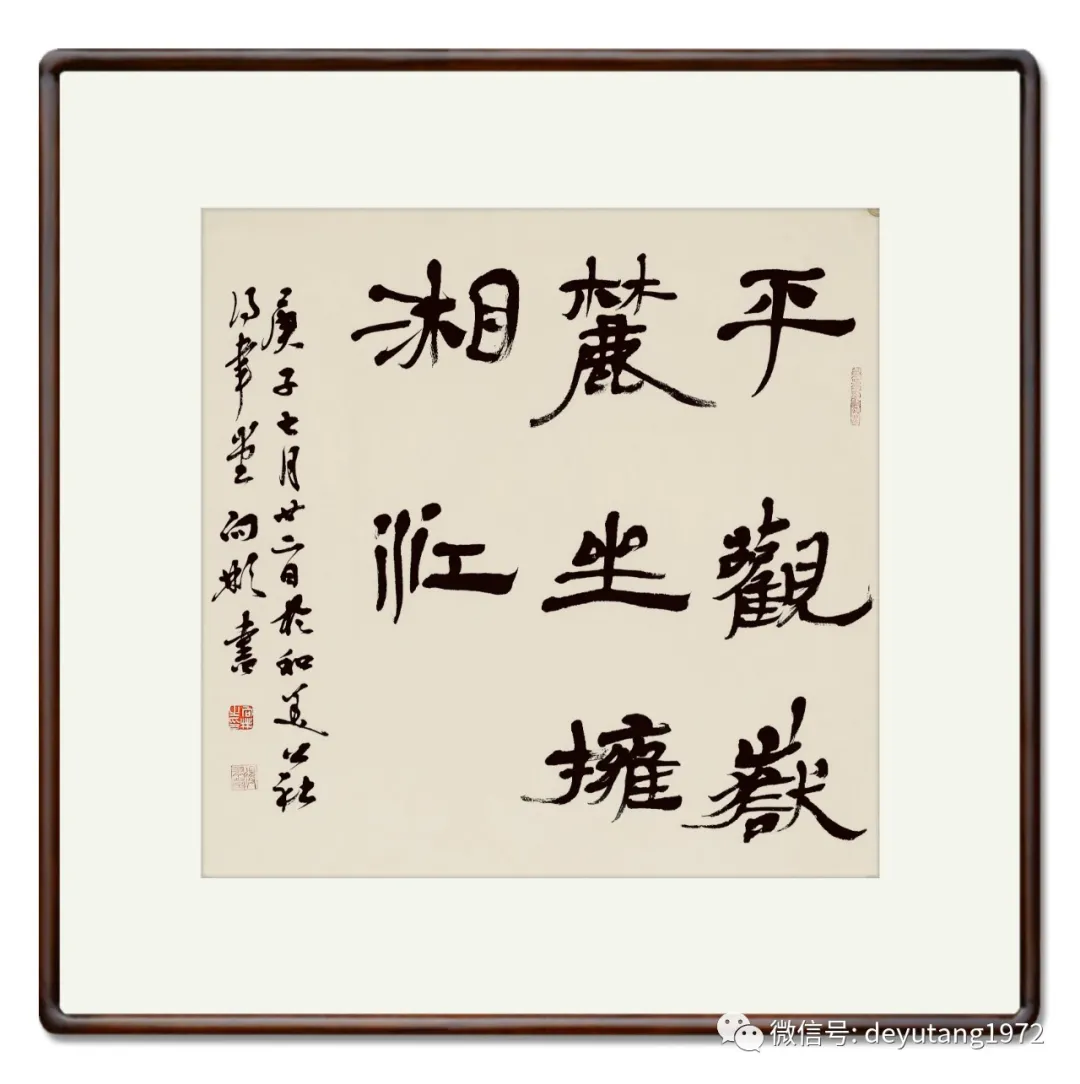 平觀嶽
麓坐擁
湘江
庚子七月廿二日於和美公社
得韋堂向彬書
微信号: deyutang1972